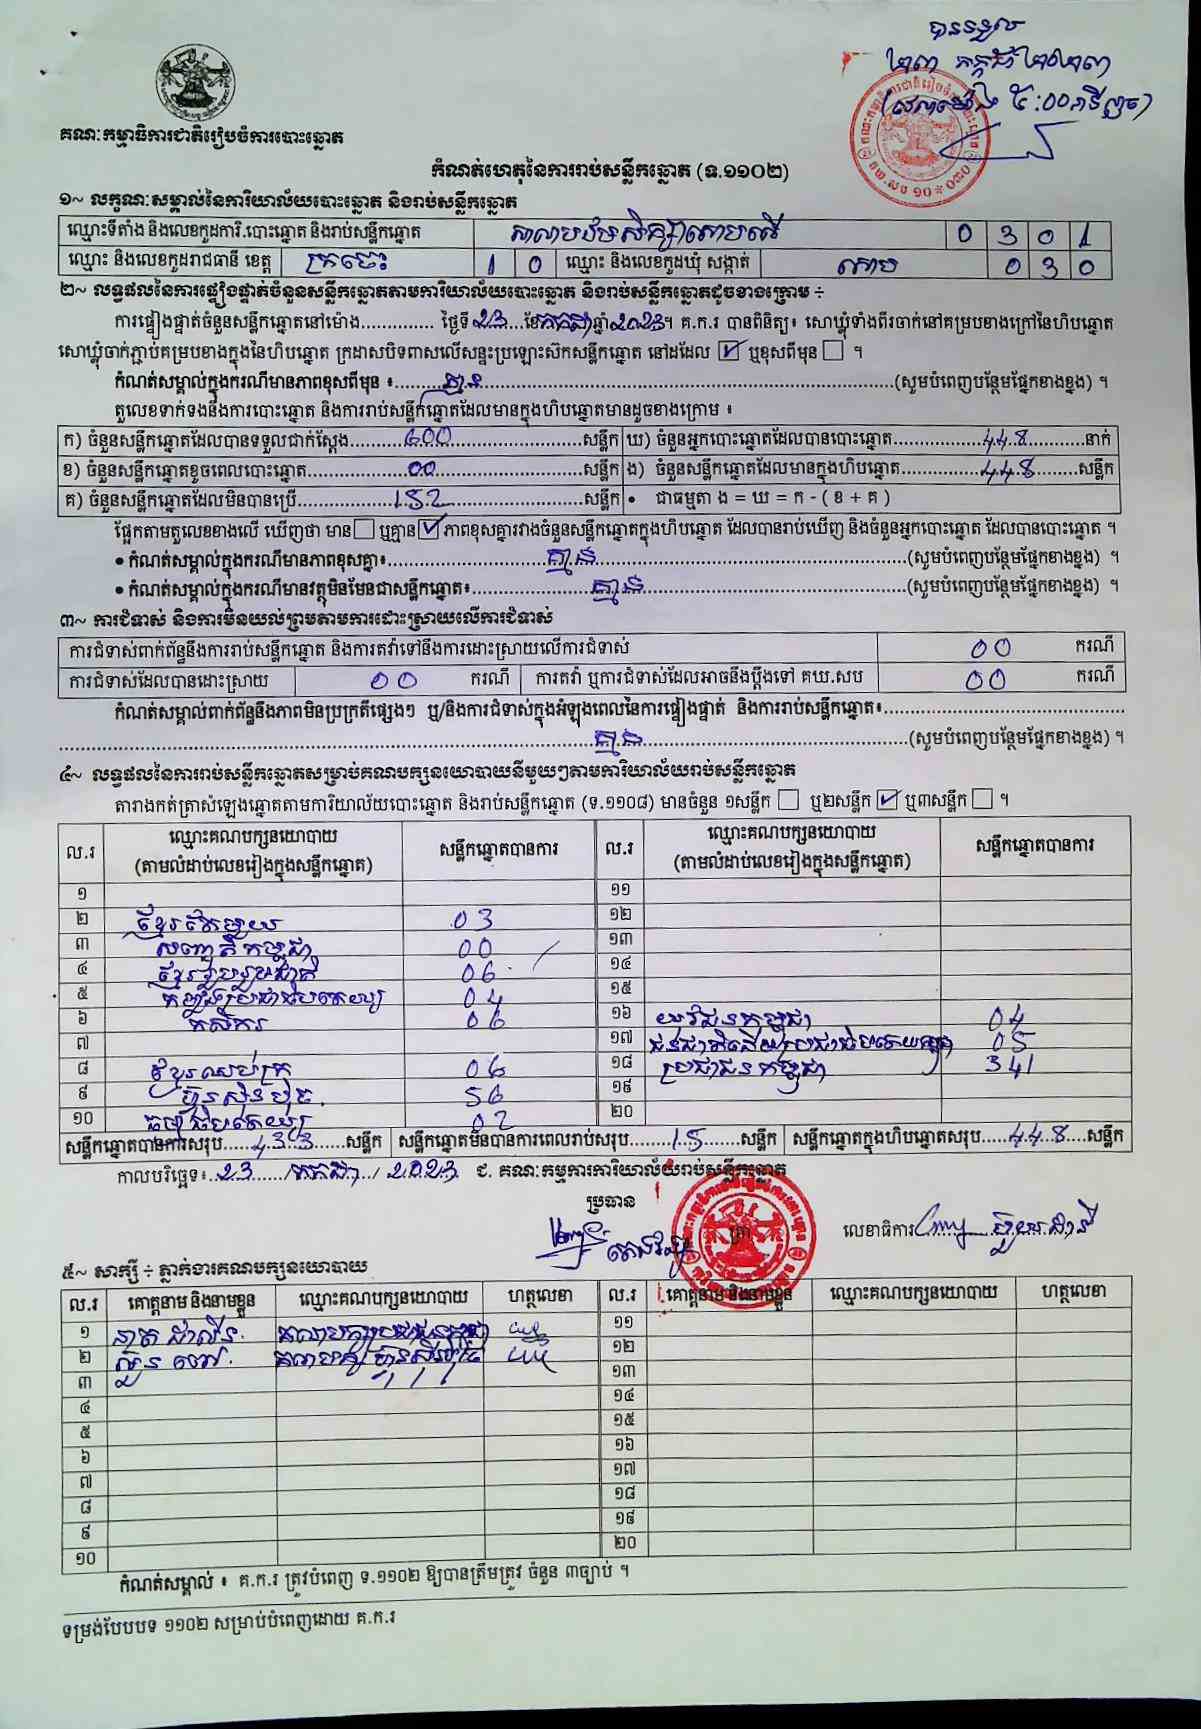 បានទទួល
២៣ កក្កដា ២០២៣
៥:00
គណៈកម្មាធិការជាតិរៀបចំការបោះឆ្នោត
កំណត់ហេតុនៃការរាប់សន្លឹកឆ្នោត (ទ.១១០២)
១~ លក្ខណៈសម្គាល់នៃការិយាល័យបោះឆ្នោត និងរាប់សន្លឹកឆ្នោត
ឈ្មោះទីតាំង និងលេខកូដការិ.បោះឆ្នោត និងរាប់សន្លឹកឆ្នោត សាលាបឋមសិក្សា 0 3 0 1
ឈ្មោះ និងលេខកូដរាជធានី ខេត្ត ក្រចេះ 1 0 ឈ្មោះ និងលេខកូដឃុំ សង្កាត់ 0 3 0
២~ លទ្ធផលនៃការផ្ទៀងផ្ទាត់ចំនួនសន្លឹកឆ្នោតតាមការិយាល័យបោះឆ្នោត និងរាប់សន្លឹកឆ្នោតដូចខាងក្រោម ÷
ការផ្ទៀងផ្ទាត់ចំនួនសន្លឹកឆ្នោតនៅម៉ោង.............. ថ្ងៃទី23...ខែកក្កដាឆ្នាំ2023។ គ.ក.រ បានពិនិត្យ៖ សោឃ្លុំទាំងពីរចាក់នៅគម្របខាងក្រៅនៃហិបឆ្នោត
សោឃ្លុំចាក់ភ្ជាប់គម្របខាងក្នុងនៃហិបឆ្នោត ក្រដាសបិទពាសលើសន្ទះប្រឡោះស៊កសន្លឹកឆ្នោត នៅដដែល ☑ ឬខុសពីមុន ☐ ។
កំណត់សម្គាល់ក្នុងករណីមានភាពខុសពីមុន ៖.........គ្មាន.........(សូមបំពេញបន្ថែមផ្នែកខាងខ្នង) ។
តួលេខទាក់ទងនឹងការបោះឆ្នោត និងការរាប់សន្លឹកឆ្នោតដែលមានក្នុងហិបឆ្នោតមានដូចខាងក្រោម ៖
ក) ចំនួនសន្លឹកឆ្នោតដែលបានទទួលជាក់ស្តែង.........600.........សន្លឹក ឃ) ចំនួនអ្នកបោះឆ្នោតដែលបានបោះឆ្នោត.........448.........នាក់
ខ) ចំនួនសន្លឹកឆ្នោតខូចពេលបោះឆ្នោត.........00.........សន្លឹក ង) ចំនួនសន្លឹកឆ្នោតដែលមានក្នុងហិបឆ្នោត.........448.........សន្លឹក
គ) ចំនួនសន្លឹកឆ្នោតដែលមិនបានប្រើ.........152.........សន្លឹក • ជាធម្មតា ង = ឃ = ក - ( ខ + គ )
ផ្អែកតាមតួលេខខាងលើ ឃើញថា មាន ☐ ឬគ្មាន ☑ ភាពខុសគ្នារវាងចំនួនសន្លឹកឆ្នោតក្នុងហិបឆ្នោត ដែលបានរាប់ឃើញ និងចំនួនអ្នកបោះឆ្នោត ដែលបានបោះឆ្នោត ។
• កំណត់សម្គាល់ក្នុងករណីមានភាពខុសគ្នា៖.........គ្មាន.........(សូមបំពេញបន្ថែមផ្នែកខាងខ្នង) ។
• កំណត់សម្គាល់ក្នុងករណីមានវត្ថុមិនមែនជាសន្លឹកឆ្នោត៖.........គ្មាន.........(សូមបំពេញបន្ថែមផ្នែកខាងខ្នង) ។
៣~ ការជំទាស់ និងការមិនយល់ព្រមតាមការដោះស្រាយលើការជំទាស់
ការជំទាស់ពាក់ព័ន្ធនឹងការរាប់សន្លឹកឆ្នោត និងការតវ៉ាទៅនឹងការដោះស្រាយលើការជំទាស់ 00 ករណី
ការជំទាស់ដែលបានដោះស្រាយ 00 ករណី ការតវ៉ា ឬការជំទាស់ដែលអាចនឹងប្តឹងទៅ គឃ.សប 00 ករណី
កំណត់សម្គាល់ពាក់ព័ន្ធនឹងភាពមិនប្រក្រតីផ្សេងៗ ឬ/និងការជំទាស់ក្នុងអំឡុងពេលនៃការផ្ទៀងផ្ទាត់ និងការរាប់សន្លឹកឆ្នោត៖.........
.........គ្មាន.........(សូមបំពេញបន្ថែមផ្នែកខាងខ្នង) ។
៤~ លទ្ធផលនៃការរាប់សន្លឹកឆ្នោតសម្រាប់គណបក្សនយោបាយនីមួយៗតាមការិយាល័យរាប់សន្លឹកឆ្នោត
តារាងកត់ត្រាសំឡេងឆ្នោតតាមការិយាល័យបោះឆ្នោត និងរាប់សន្លឹកឆ្នោត (ទ.១១០៨) មានចំនួន ១សន្លឹក ☐ ឬ២សន្លឹក ☑ ឬ៣សន្លឹក ☐ ។
ល.រ ឈ្មោះគណបក្សនយោបាយ (តាមលំដាប់លេខរៀងក្នុងសន្លឹកឆ្នោត) សន្លឹកឆ្នោតបានការ ល.រ ឈ្មោះគណបក្សនយោបាយ (តាមលំដាប់លេខរៀងក្នុងសន្លឹកឆ្នោត) សន្លឹកឆ្នោតបានការ
១ ១១
២ ខ្មែរតែមួយ 03 ១២
៣ សញ្ជាតិកម្ពុជា 00 ១៣
៤ ខ្មែររួបរួមជាតិ 06 ១៤
៥ កម្លាំងប្រជាធិបតេយ្យ 04 ១៥
៦ កសិករ 06 ១៦ យុវជនកម្ពុជា 04
៧ ១៧ ជនជាតិដើមប្រជាធិបតេយ្យកម្ពុជា 05
៨ ខ្មែរឈប់ក្រ 06 ១៨ ប្រជាជនកម្ពុជា 341
៩ ហ៊្វុនស៊ិនប៉ិច 56 ១៩
១០ ធម្មាធិបតេយ្យ 02 ២០
សន្លឹកឆ្នោតបានការសរុប......433......សន្លឹក សន្លឹកឆ្នោតមិនបានការពេលរាប់សរុប......15......សន្លឹក សន្លឹកឆ្នោតក្នុងហិបឆ្នោតសរុប......448......សន្លឹក
កាលបរិច្ឆេទ៖ 23 / កក្កដា / 2023 ជ. គណៈកម្មការការិយាល័យរាប់សន្លឹកឆ្នោត
ប្រធាន
លេខាធិការ
៥~ សាក្សី ÷ ភ្នាក់ងារគណបក្សនយោបាយ
ល.រ គោត្តនាម និងនាមខ្លួន ឈ្មោះគណបក្សនយោបាយ ហត្ថលេខា ល.រ គោត្តនាម និងនាមខ្លួន ឈ្មោះគណបក្សនយោបាយ ហត្ថលេខា
១ គណបក្សប្រជាជនកម្ពុជា ១១
២ គណបក្សហ៊្វុនស៊ិនប៉ិច ១២
៣ ១៣
៤ ១៤
៥ ១៥
៦ ១៦
៧ ១៧
៨ ១៨
៩ ១៩
១០ ២០
កំណត់សម្គាល់ ៖ គ.ក.រ ត្រូវបំពេញ ទ.១១០២ ឱ្យបានត្រឹមត្រូវ ចំនួន ៣ច្បាប់ ។
ទម្រង់បែបបទ ១១០២ សម្រាប់បំពេញដោយ គ.ក.រ